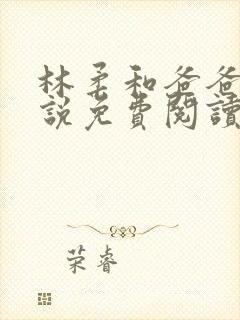 林柔和爸爸
說免費閱讀
荣睿